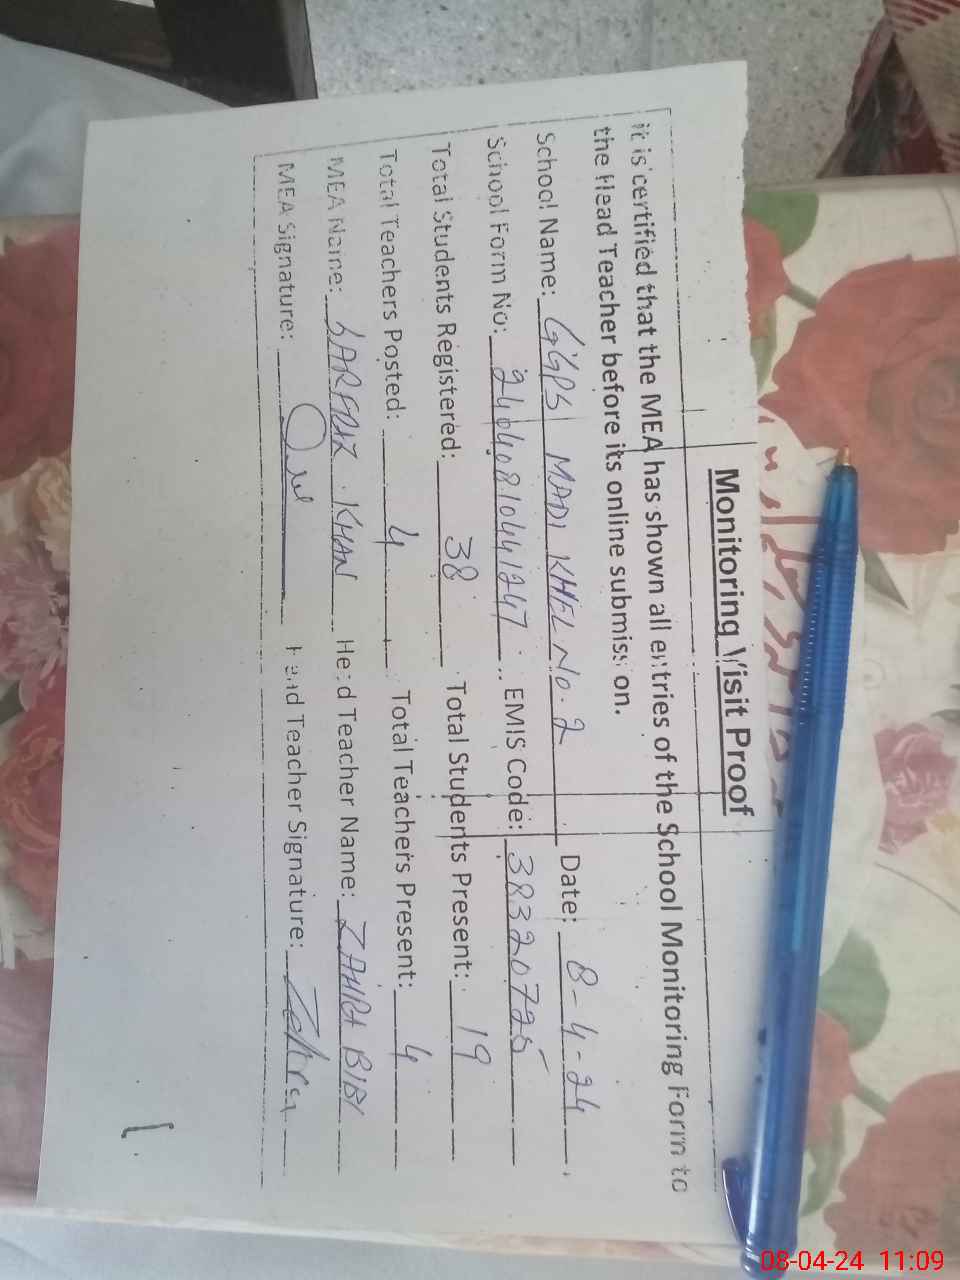 Monitoring Visit Proof
it is certified that the MEA has shown all entries of the School Monitoring Form to
the Head Teacher before its online submission.
School Name: GGPS MADI KHEL No. 2 Date: 8-4-24
School Form No: 24040810441247 EMIS Code: 38320725
Total Students Registered: 38 Total Students Present: 19
Total Teachers Posted: 4 Total Teachers Present: 4
MEA Name: SARFRAZ KHAN Head Teacher Name: ZAHRA BIBI
MEA Signature: Head Teacher Signature: Zahra
08-04-24 11:09